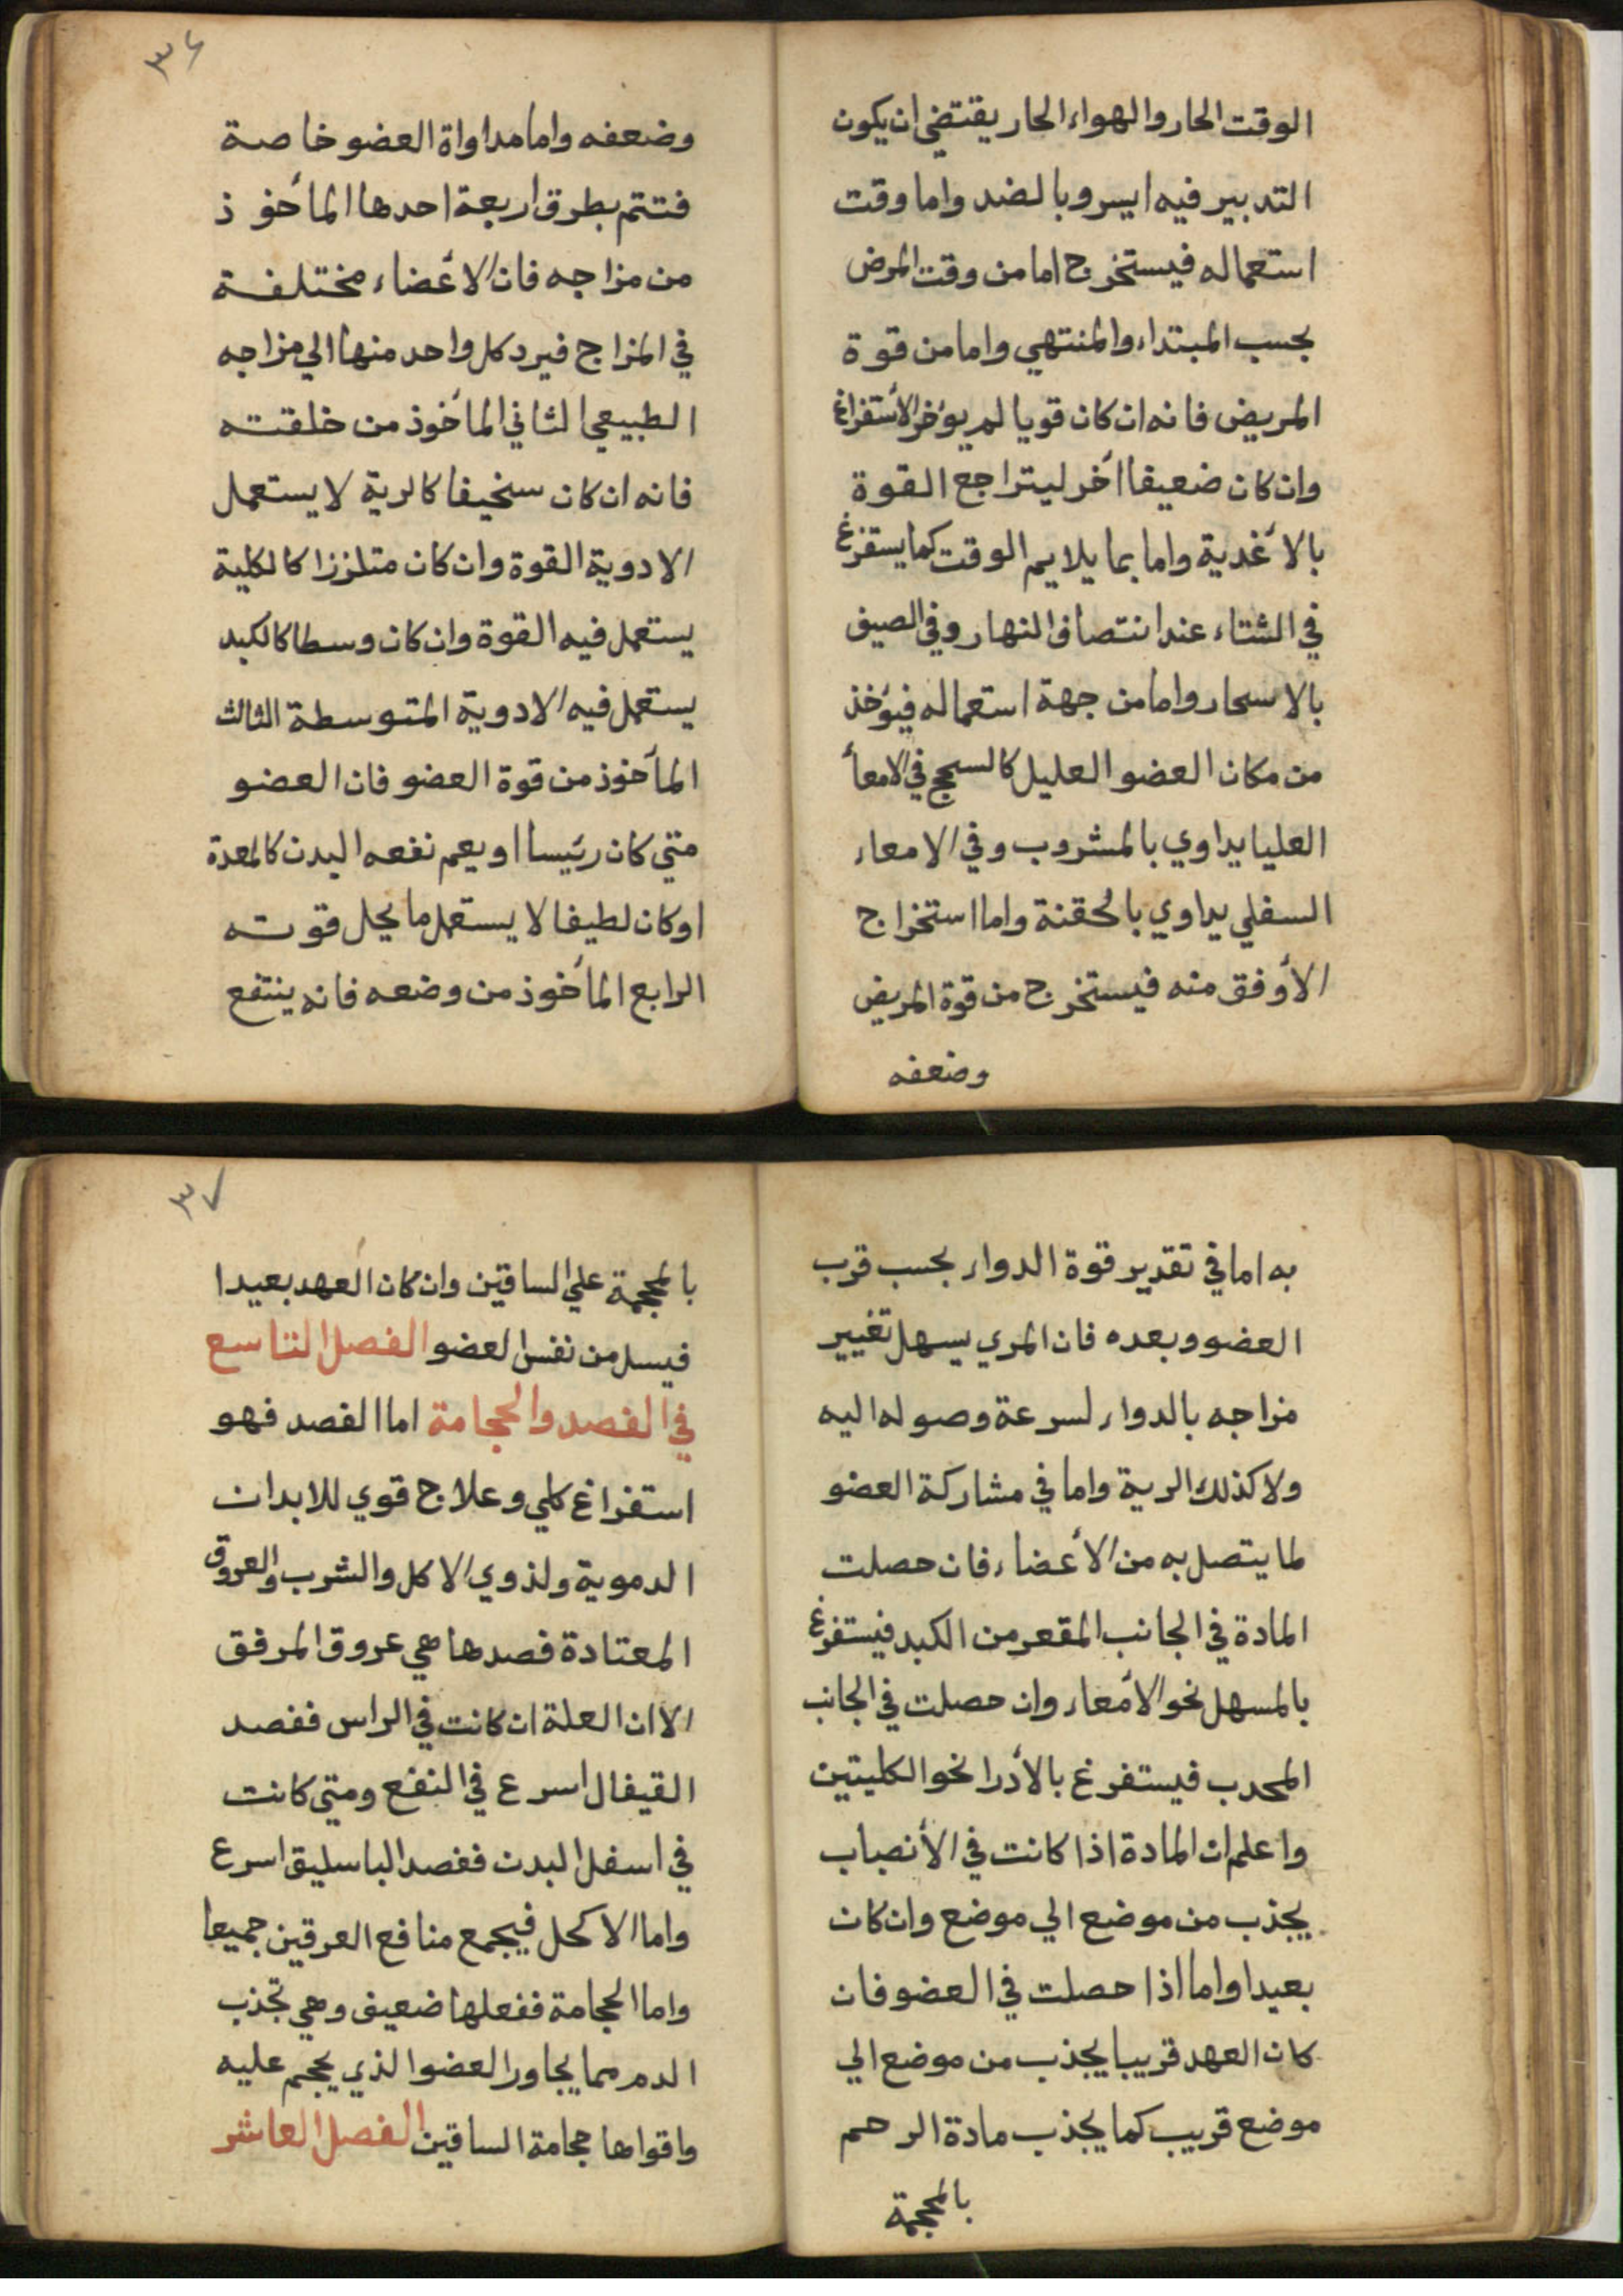 الوقت الحار والهواء الحار يقتضي ان يكون
التدبير فيه ايسر وبالضد واما وقت
استعماله فيستخرج اما من وقت المرض
بحسب المبتداء والمنتهي واما من قوة
المريض فانه ان كان قويا لم يؤخر الأستفراغ
وان كان ضعيفا اخر ليتراجع القوة
بالأغدية واما بما يلايم الوقت كما يستفرغ
في الشتاء عند انتصاف النهار وفي الصيف
بالاسحار واما من جهة استعماله فيؤخذ
من مكان العضو العليل كالسحج في الامعأ
العليا يداوي بالمشروب وفي الامعاء
السفلي يداوي بالحقنة واما استخراج
الأوفق منه فيستخرج من قوة المريض
وضعفه
٣٦
وضعفه واما مداواة العضو خاصة
فتتم بطرق اربعة احدها المأخوذ
من مزاجه فان الأعضاء مختلفة
في المزاج فيرد كل واحد منها الي مزاجه
الطبيعي الثاني المأخوذ من خلقته
فانه ان كان سخيفا كالرية لا يستعمل
الادوية القوة وان كان متلززا كالكلية
يستعمل فيه القوة وان كان وسطا كالكبد
يستعمل فيه الادوية المتوسطة الثالث
المأخوذ من قوة العضو فان العضو
متي كان رئيسا او يعم نفعه البدن كالمعدة
او كان لطيفا لا يستعمل ما يحل قوته
الرابع المأخوذ من وضعه فانه ينتفع
به اما في تقدير قوة الدواء بحسب قرب
العضو وبعده فان المري يسهل تغيير
مزاجه بالدواء لسرعة وصوله اليه
ولا كذلك الرية واما في مشاركة العضو
لما يتصل به من الأعضاء فان حصلت
المادة في الجانب المقعر من الكبد فيستفرغ
بالمسهل نحو الأمعاء وان حصلت في الجانب
المحدب فيستفرغ بالأدرا نحو الكليتين
واعلم ان المادة اذا كانت في الأنصباب
يجذب من موضع الي موضع وان كان
بعيدا واما اذا حصلت في العضو فان
كان العهد قريبا يجذب من موضع الي
موضع قريب كما يجذب مادة الرحم
بالمحجمة
٣٧
بالمحجمة علي الساقين وان كان العهد بعيدا
فيسل من نفس العضو الفصل التاسع
في الفصد والحجامة اما الفصد فهو
استفراغ كلي وعلاج قوي للابدان
الدموية ولذوي الاكل والشرب والعروق
المعتادة فصدها هي عروق المرفق
الا ان العلة ان كانت في الراس ففصد
القيفال اسرع في النفع ومتي كانت
في اسفل البدن ففصد الباسليق اسرع
واما الاكحل فيجمع منافع العرقين جميعا
واما الحجامة ففعلها ضعيف وهي تجذب
الدم مما يجاور العضو الذي يحجم عليه
واقواها حجامة الساقين الفصل العاشر